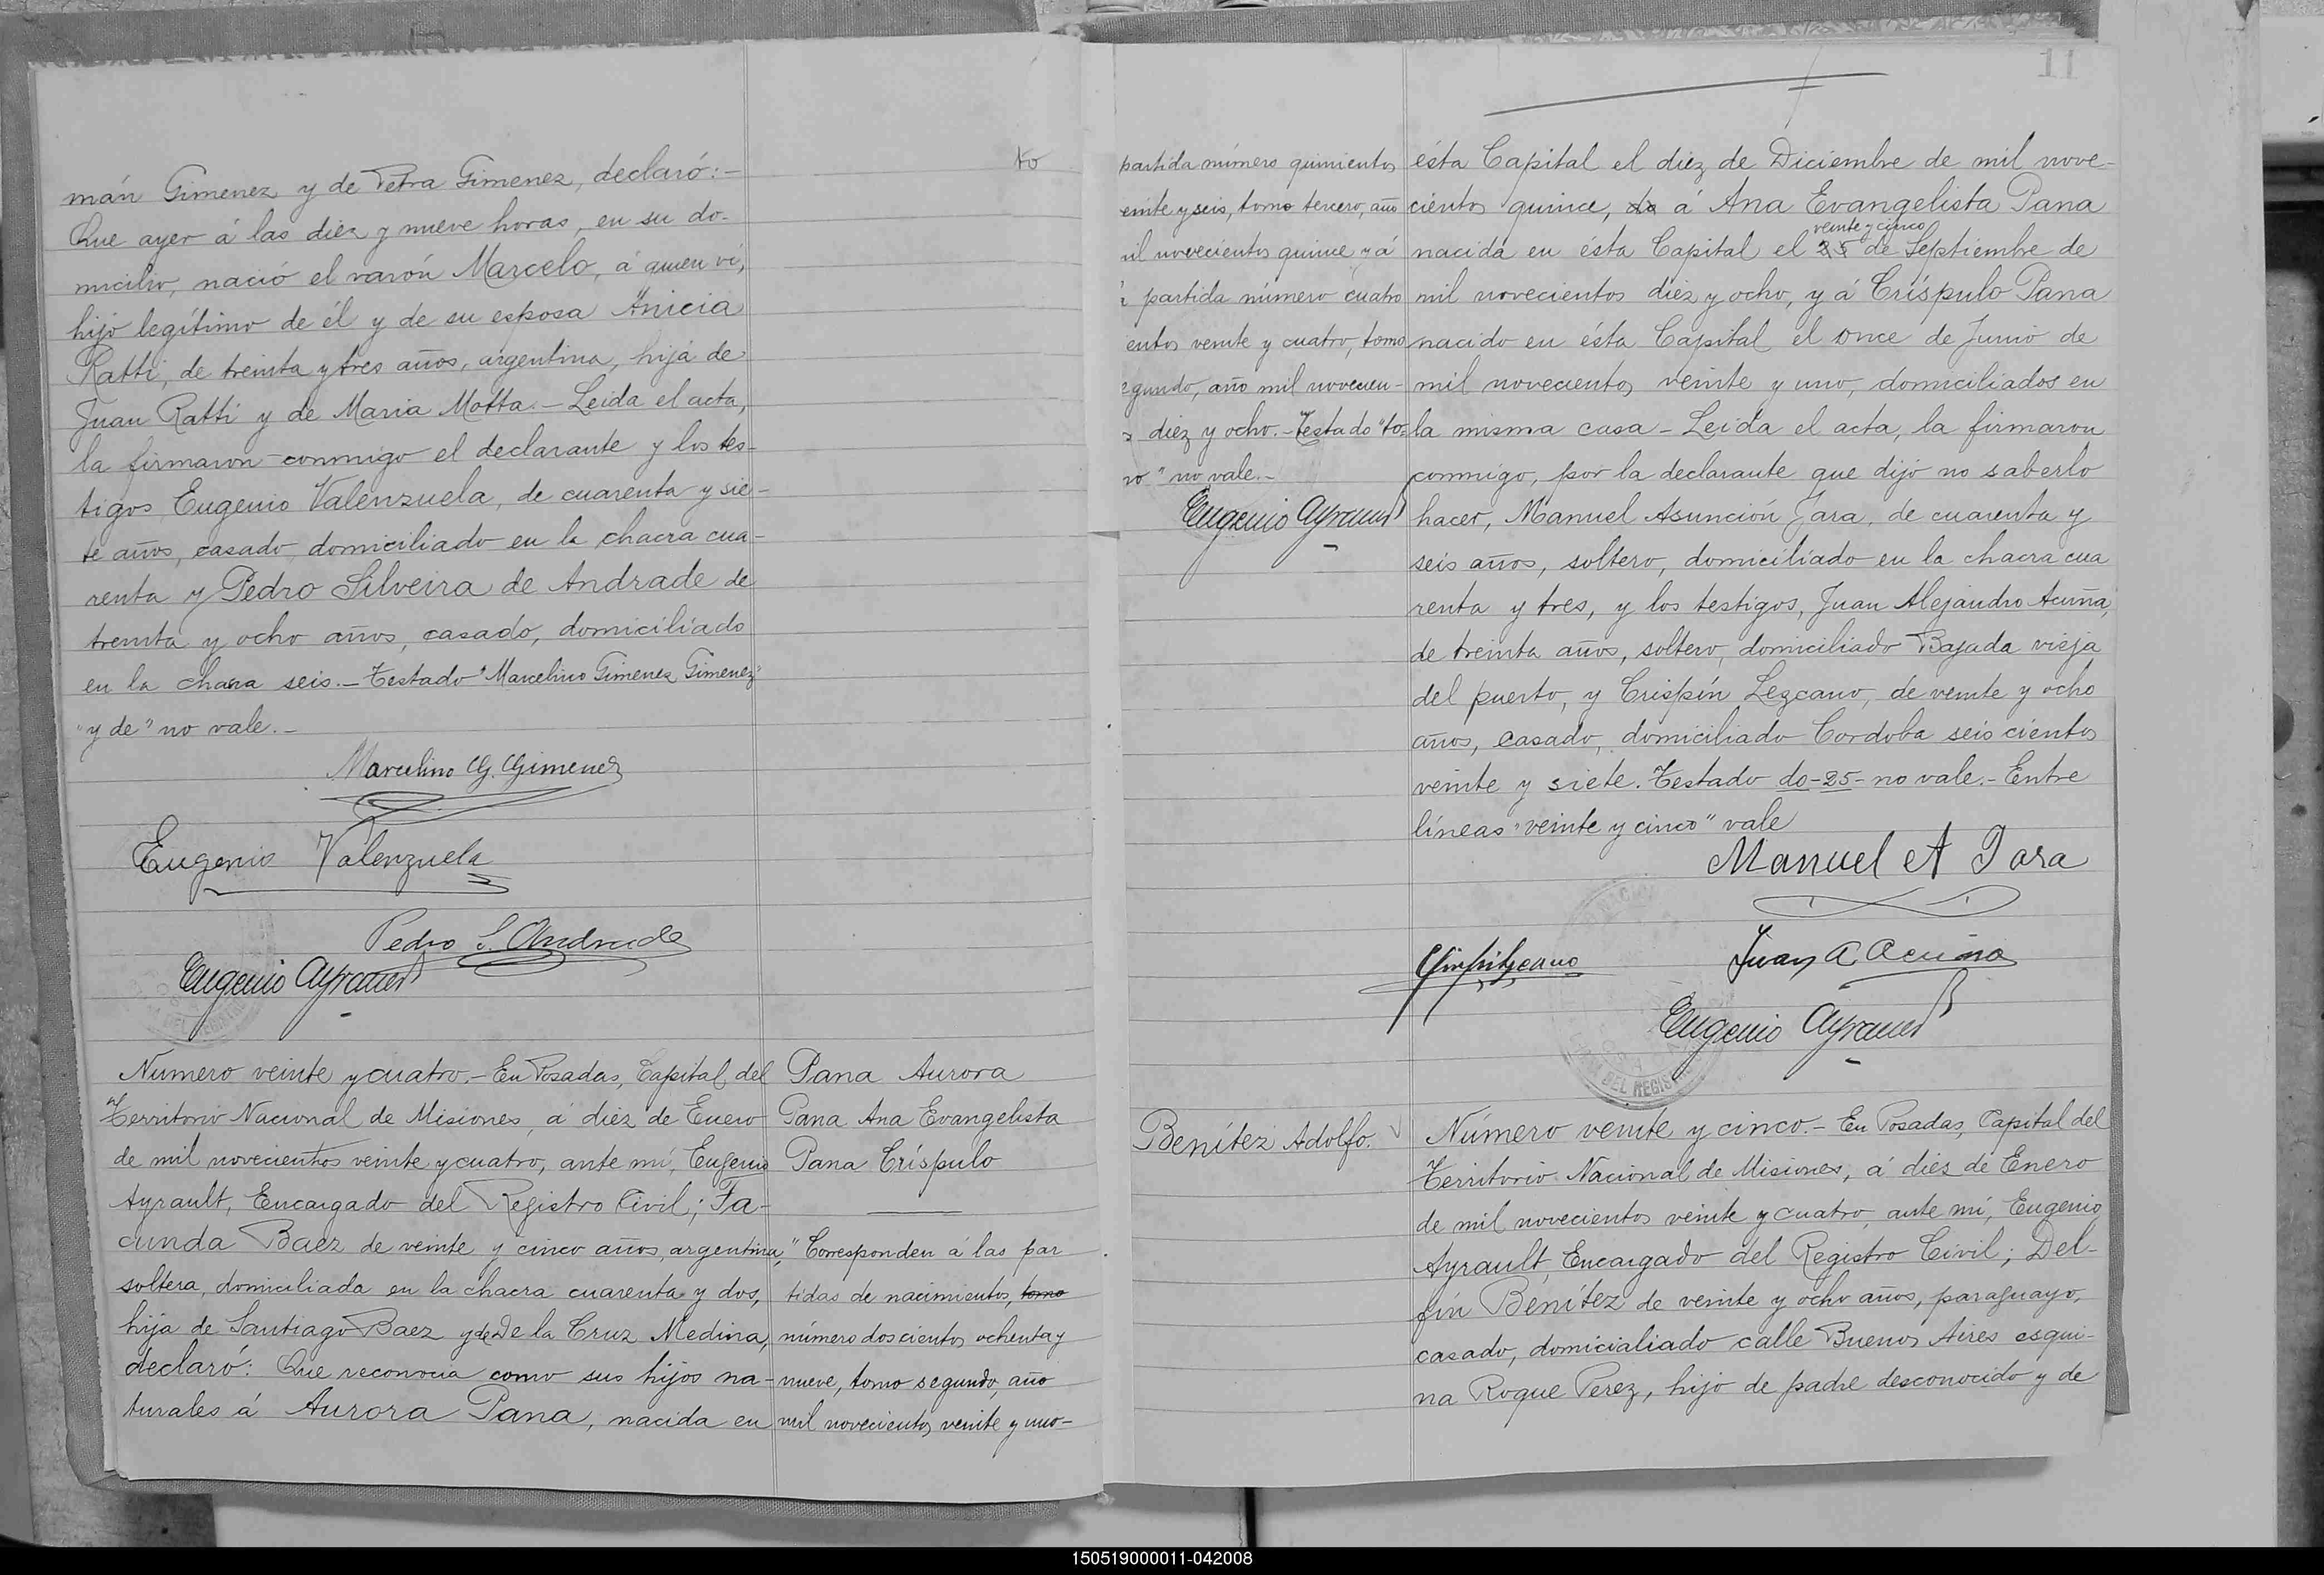 mán Gimenez y de Petra Gimenez, declaró:-
Que ayer á las diez y nueve horas, en su do-
micilio, nació el varón Marcelo, á quien ví,
hijo legítimo de él y de su esposa Anicia
Ratti, de treinta y tres años, argentina, hija de
Juan Ratti y de Maria Motta.- Leida el acta,
la firmaron conmigo el declarante y los tes-
tigos Eugenio Valenzuela, de cuarenta y sie-
te años, casado, domiciliado en la chacra cua-
renta y Pedro Silveira de Andrade de
treinta y ocho años, casado, domiciliado
en la chacra seis.- Testado "Marcelino Gimenez Gimenez"
"y de" no vale.-
Marcelino G. Gimenez
Eugenio Valenzuela
Pedro S. Andrade
Eugenio Ayrault
Número veinte y cuatro.- En Posadas, Capital del
Territorio Nacional de Misiones, á diez de Enero
de mil novecientos veinte y cuatro, ante mí, Eugenio
Ayrault, Encargado del Registro Civil; Fa-
cunda Baez de veinte y cinco años, argentina,
soltera, domiciliada en la chacra cuarenta y dos,
hija de Santiago Baez y de De la Cruz Medina,
declaró: Que reconocia como sus hijos na-
turales á Aurora Pana, nacida en
Pana Aurora
Pana Ana Evangelista
Pana Críspulo
"Corresponden á las par
tidas de nacimientos, tomo
número doscientos ochenta y
nueve, tomo segundo, año
mil novecientos veinte y uno-
11
partida número quinientos
einte y seis, tomo tercero, año
il novecientos quince y á
partida número cuatro
entos veinte y cuatro, tomo
egundo, año mil novecien-
diez y ocho.- Testado "to-
ro" no vale.-
Eugenio Ayrault
ésta Capital el diez de Diciembre de mil nove-
cientos quince, do á Ana Evangelista Pana
veinte y cinco
nacida en ésta Capital el 25 de Septiembre de
mil novecientos diez y ocho, y á Críspulo Pana
nacido en ésta Capital el once de Junio de
mil novecientos veinte y uno, domiciliados en
la misma casa - Leida el acta, la firmaron
conmigo, por la declarante que dijo no saberlo
hacer, Manuel Asunción Jara, de cuarenta y
seis años, soltero, domiciliado en la chacra cua
renta y tres, y los testigos, Juan Alejandro Acuña,
de treinta años, soltero, domiciliado Bajada vieja
del puerto, y Crispín Lezcano, de veinte y ocho
años, casado, domiciliado Cordoba seis cientos
veinte y siete. Testado do-25- no vale.- Entre
líneas "veinte y cinco" vale
Manuel A Jara
Juan A Acuña
Eugenio Ayrault
DEL REGIS
Benítez Adolfo.
Número veinte y cinco.- En Posadas, Capital del
Territorio Nacional de Misiones, á diez de Enero
de mil novecientos veinte y cuatro, ante mí, Eugenio
Ayrault, Encargado del Registro Civil; Del-
fín Benítez de veinte y ocho años, paraguayo,
casado, domicialiado calle Buenos Aires esqui-
na Roque Perez, hijo de padre desconocido y de
150519000011-042008